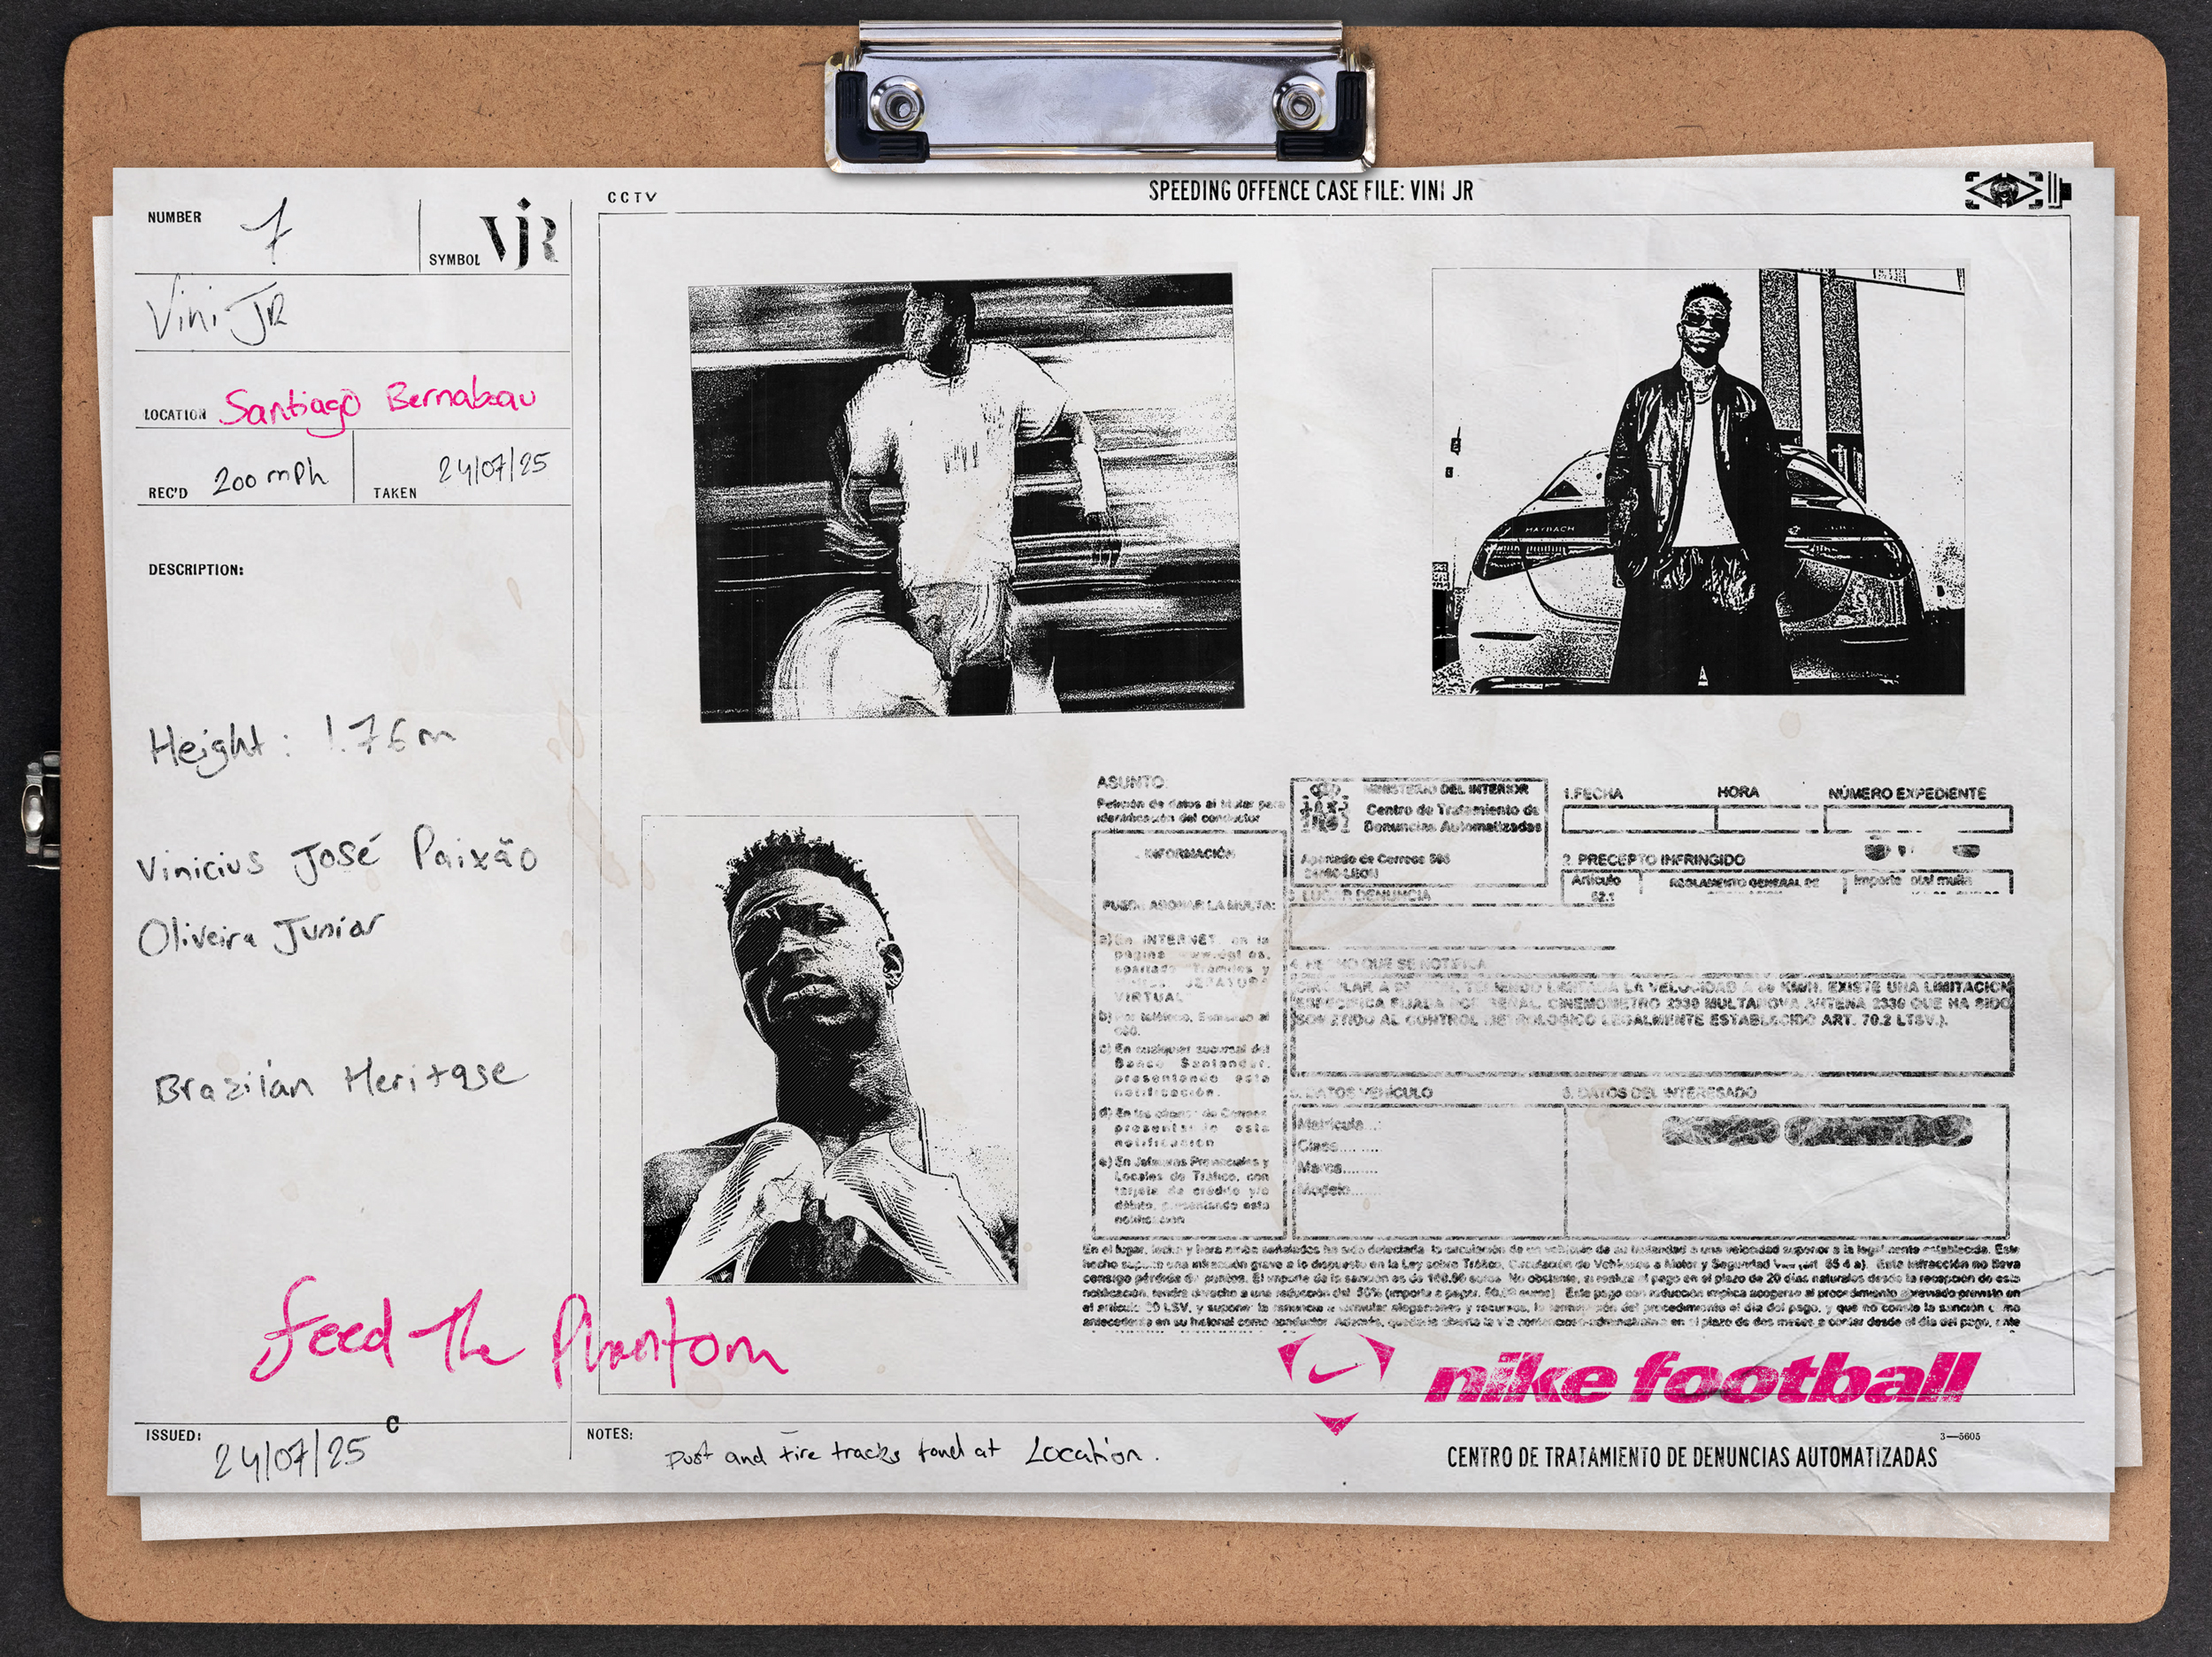 SPEEDING OFFENCE CASE FILE: VINI JR
CCTV
NUMBER 7
SYMBOL VjR
Vini JR
LOCATION Santiago Bernabeau
REC'D 200 mph
TAKEN 24/07/25
DESCRIPTION:
Height: 1.76m
Vinicius José Paixão
Oliveira Junior
Brazilian Heritage
Feed The Phantom
ISSUED: 24/07/25
C
MAYBACH
ASUNTO:
Petición de datos al titular para
identificación del conductor
INFORMACIÓN
ABONAR LA MULTA:
a) En INTERNET, en la
página
apartado Trámites y
VIRTUAL
b) Por teléfono, llamando al
060.
c) En cualquier sucursal del
Banco Santander,
presentando esta
notificación.
d) En las oficinas de Correos,
presentando esta
notificación
e) En Jefaturas Provinciales y
Locales de Tráfico, con
tarjeta de crédito y/o
débito, presentando esta
notificación
MINISTERIO DEL INTERIOR
Centro de Tratamiento de
Denuncias Automatizadas
Apartado de Correos
LEON
1.FECHA
HORA
NÚMERO EXPEDIENTE
2. PRECEPTO INFRINGIDO
Artículo
REGLAMENTO GENERAL DE
Importe total multa
52.1
LUGAR DENUNCIA
HECHO QUE SE NOTIFICA
CIRCULAR A TENIENDO LIMITADA LA VELOCIDAD A KM/H. EXISTE UNA LIMITACION
ESPECIFICA FIJADA POR SEÑAL. CINEMOMETRO 2330 MULTANOVA ANTENA 2330 QUE HA SIDO
SOMETIDO AL CONTROL METROLOGICO LEGALMENTE ESTABLECIDO ART. 70.2 LTSV.).
DATOS VEHÍCULO
Matrícula..:
Clase.......
Marca........
Modelo.......
DATOS DEL INTERESADO
En el lugar, fecha y hora arriba señalados ha sido detectada la circulación de un vehículo de su titularidad a una velocidad superior a la legalmente establecida. Este
hecho supone una infracción grave a lo dispuesto en la Ley sobre Tráfico, Circulación de Vehículos a Motor y Seguridad Vial (art. 65.4 a). Esta infracción no lleva
consigo pérdida de puntos. El importe de la sanción es de 100.00 euros. No obstante, si realiza el pago en el plazo de 20 días naturales desde la recepción de esta
notificación, tendrá derecho a una reducción del 50% (importe a pagar, 50,00 euros). Este pago con reducción implica acogerse al procedimiento abreviado previsto en
el artículo 80 LSV, y supone: la renuncia a formular alegaciones y recursos, la terminación del procedimiento el día del pago, y que no conste la sanción como
antecedente en su historial como conductor. Además, quedaría abierta la vía contencioso-administrativa en el plazo de dos meses a contar desde el día del pago, ante
nike football
NOTES: Dust and tire tracks fond at Location.
3—5605
CENTRO DE TRATAMIENTO DE DENUNCIAS AUTOMATIZADAS